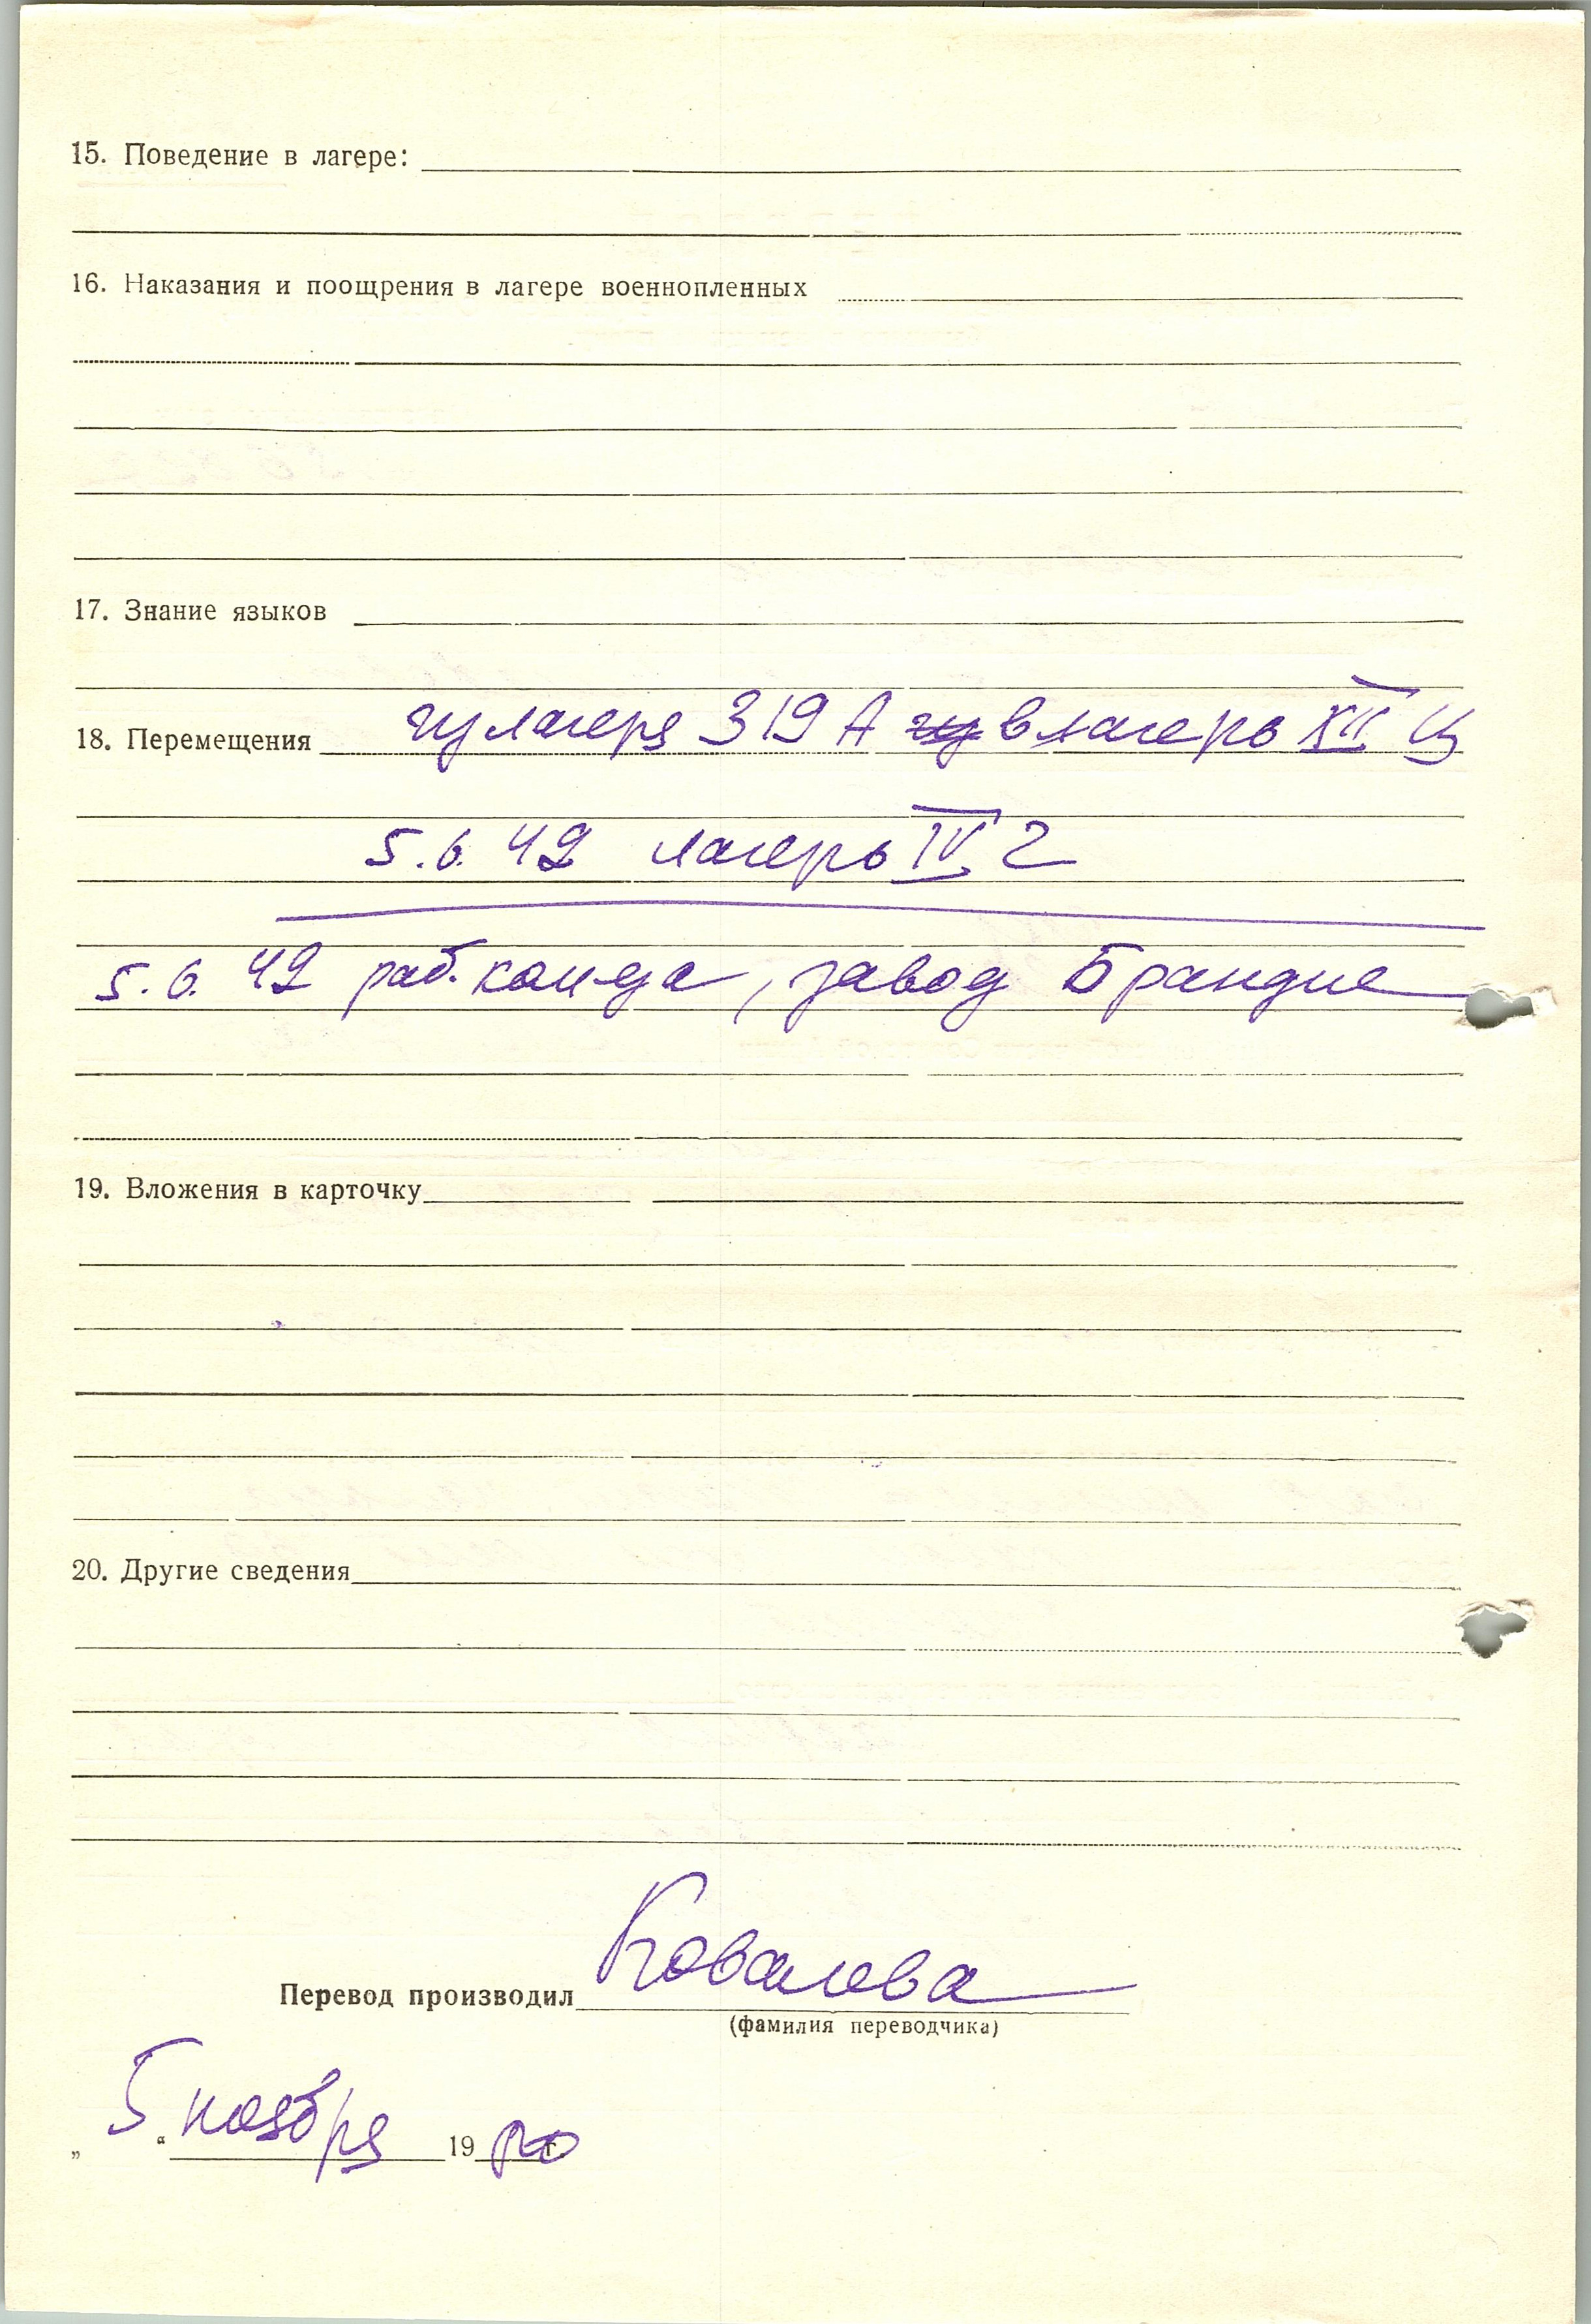 15. Поведение в лагере:
16. Наказания и поощрения в лагере военнопленных
17. Знание языков
18. Перемещения из лагеря 319 А в лагерь XII Ц
5.6.42 лагерь IV Г
5.6.42 раб. кома-да, завод Брандис
19. Вложения в карточку
20. Другие сведения
Перевод производил Ковалева
(фамилия переводчика)
„ 5 “ ноября 19 г.